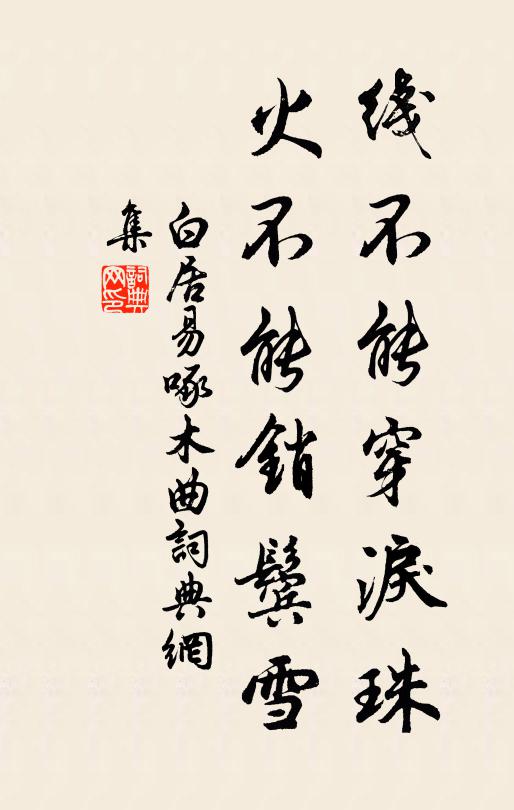 线不能穿淚珠
火不能銷鬓雪
白居易啄木曲詞典網
集
詞典
网印